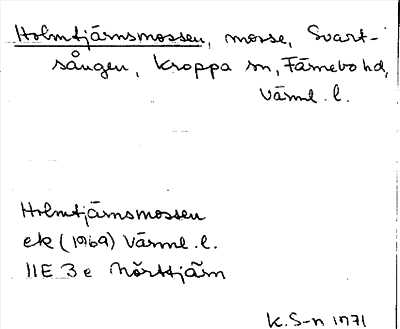 Holmtjärnsmossen, mosse, Svart-
sången, Kroppa sn, Färnebo hd,
Värml. l.
Holmtjärnsmossen
ek (1969) Värml. l.
11E 3e Nörttjärn
K.S-n 1971